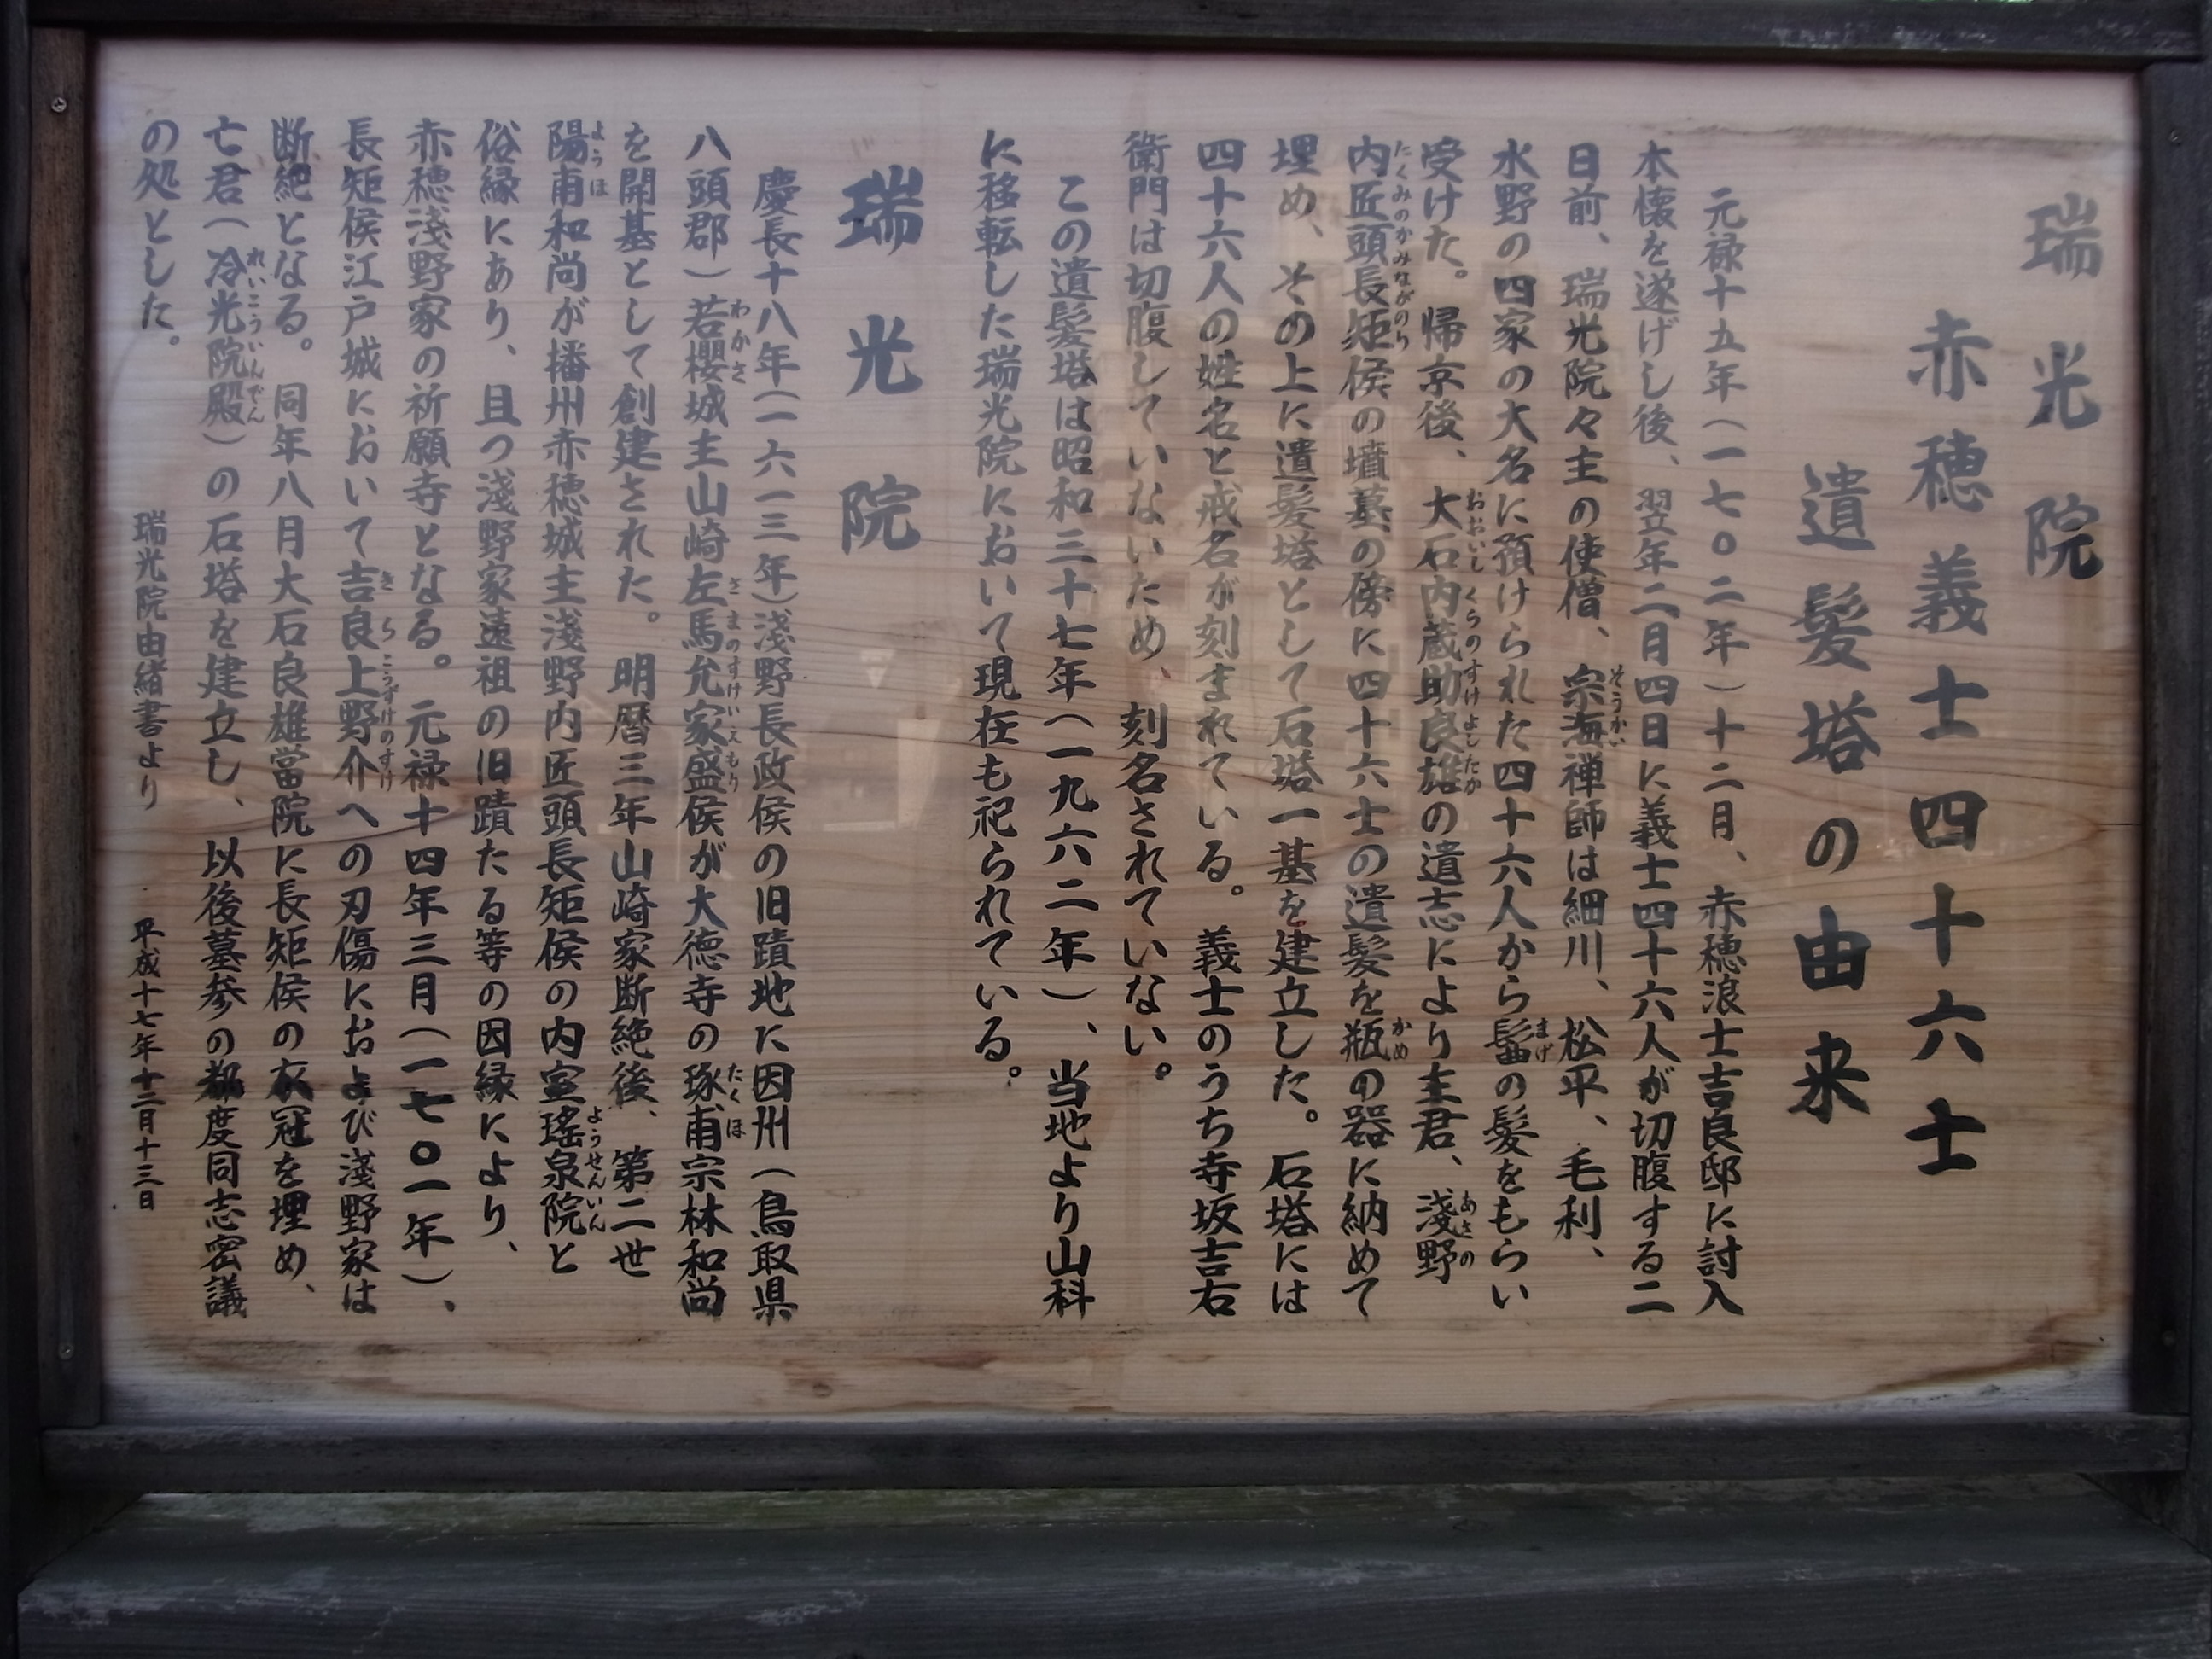 瑞光院
赤穂義士四十六士
遺髪塔の由来
元禄十五年(一七〇二年)十二月、赤穂浪士吉良邸に討入
本懐を遂げし後、翌年二月四日に義士四十六人が切腹する二
日前、瑞光院々主の使僧、宗海禅師は細川、松平、毛利、
水野の四家の大名に預けられた四十六人から髷の髪をもらい
受けた。帰京後、大石内蔵助良雄の遺志により主君、淺野
内匠頭長矩侯の墳墓の傍に四十六士の遺髪を瓶の器に納めて
埋め、その上に遺髪塔として石塔一基を建立した。石塔には
四十六人の姓名と戒名が刻まれている。義士のうち寺坂吉右
衛門は切腹していないため、刻名されていない。
この遺髪塔は昭和三十七年(一九六二年)、当地より山科
に移転した瑞光院において現在も祀られている。
瑞光院
慶長十八年(一六一三年)淺野長政侯の旧蹟地に因州(鳥取県
八頭郡)若櫻城主山崎左馬允家盛侯が大徳寺の琢甫宗林和尚
を開基として創建された。明暦三年山崎家断絶後、第二世
陽甫和尚が播州赤穂城主淺野内匠頭長矩侯の内室瑤泉院と
俗縁にあり、且つ淺野家遠祖の旧蹟たる等の因縁により、
赤穂淺野家の祈願寺となる。元禄十四年三月(一七〇一年)、
長矩侯江戸城において吉良上野介への刃傷におよび淺野家は
断絶となる。同年八月大石良雄當院に長矩侯の衣冠を埋め、
亡君(冷光院殿)の石塔を建立し、以後墓参の都度同志密議
の処とした。
瑞光院由緒書より　平成十七年十二月十三日